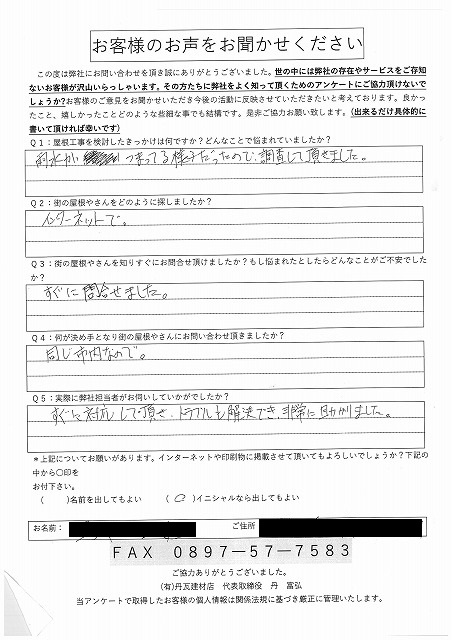 お客様のお声をお聞かせください
この度は弊社にお問い合わせを頂き誠にありがとうございました。世の中には弊社の存在やサービスをご存知
ないお客様が沢山いらっしゃいます。その方たちに弊社をよく知って頂くためのアンケートにご協力頂けないで
しょうか?お客様のご意見をお聞かせいただき今後の活動に反映させていただきたいと考えております。良かっ
たこと、嬉しかったことどのような些細な事でも結構です。是非ご協力お願い致します。(出来るだけ具体的に
書いて頂ければ幸いです)
Q1:屋根工事を検討したきっかけは何ですか?どんなことで悩まれていましたか?
雨水が つまってる様子だったので、調査して頂きました。
Q2:街の屋根やさんをどのように探しましたか?
インターネットで。
Q3:街の屋根やさんを知りすぐにお問合せ頂けましたか?もし悩まれたとしたらどんなことがご不安でした
か?
すぐに問合せました。
Q4:何が決め手となり街の屋根やさんにお問い合わせ頂きましたか?
同じ市内なので。
Q5:実際に弊社担当者がお伺いしていかがでしたか?
すぐに対応して頂き、トラブルも解決でき、非常に助かりました。
*上記についてお願いがあります。インターネットや印刷物に掲載させて頂いてもよろしいでしょうか?下記の
中から〇印を
お付下さい。
( )名前を出してもよい (○)イニシャルなら出してもよい
お名前: ご住所
FAX 0897-57-7583
ご協力ありがとうございました。
(有)丹瓦建材店 代表取締役 丹 富弘
当アンケートで取得したお客様の個人情報は関係法規に基づき厳正に管理いたします。